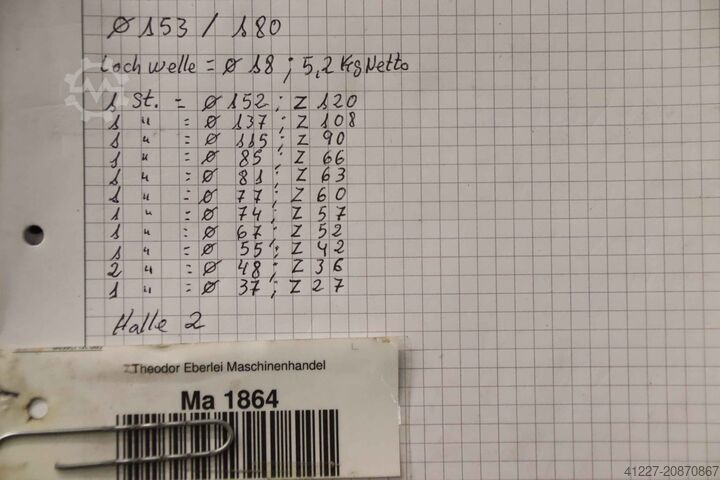 Ø 153 / 180
Lochwelle = Ø 18 ; 5,2 Kg Netto
1 St. = Ø 152 ; Z 120
1 " = Ø 137 ; Z 108
1 " = Ø 115 ; Z 90
1 " = Ø 85 ; Z 66
1 " = Ø 81 ; Z 63
1 " = Ø 77 ; Z 60
1 " = Ø 74 ; Z 57
1 " = Ø 67 ; Z 52
1 " = Ø 55 ; Z 42
2 " = Ø 48 ; Z 36
1 " = Ø 37 ; Z 27
Halle 2
Theodor Eberlei Maschinenhandel
Ma 1864
41227-20870867